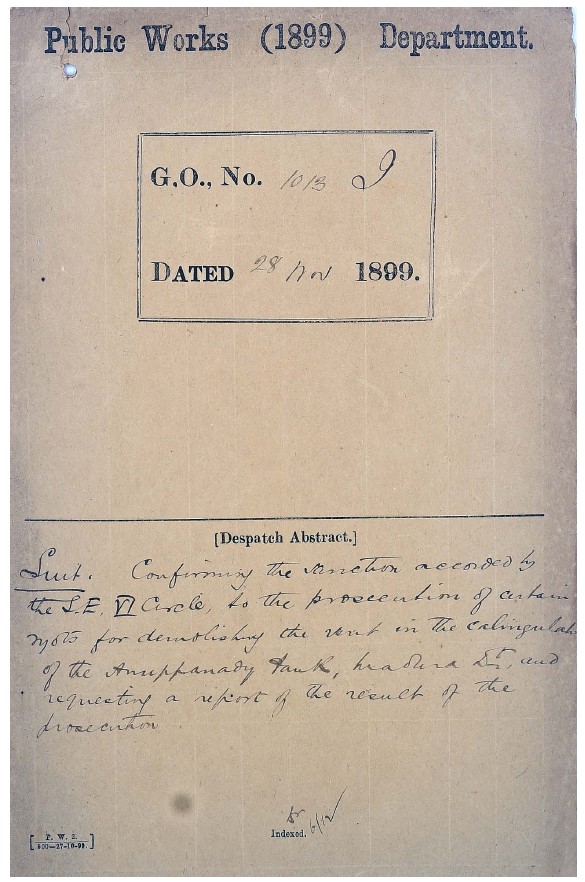 Public Works (1899) Department.
G.O., No. 1013 I
DATED 28 Nov 1899.
[Despatch Abstract.]
Confirming the sanction accorded by
the S.E. VI Circle, to the prosecution of certain
ryots for demolishing the vent in the calingulah
of the Anuppanady Tank, Madura Dt., and
requesting a report of the result of the
prosecution
Indexed. 6/12
[P. W. 2.
800—27-10-99.]